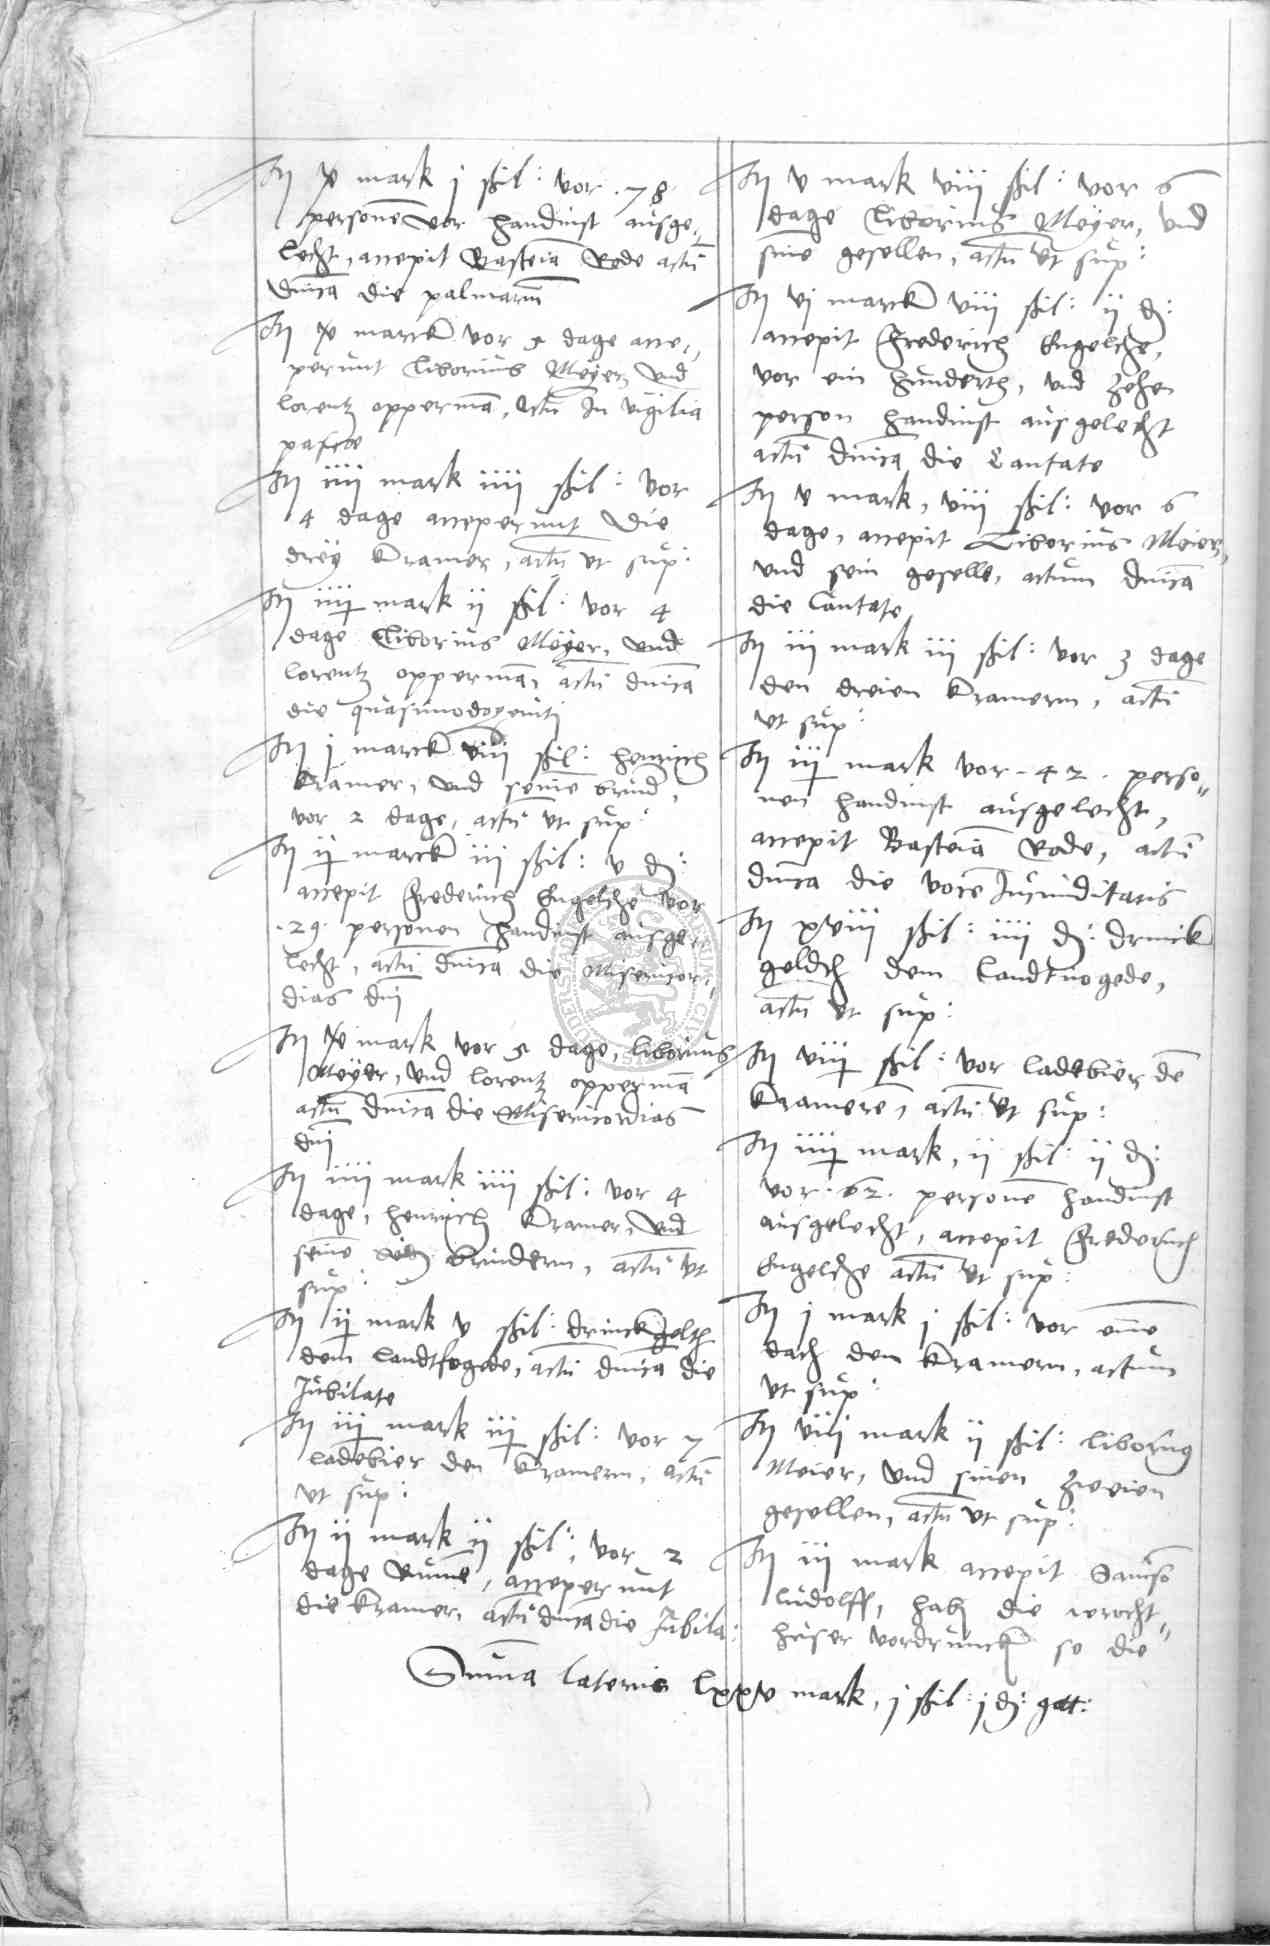 It v mark j ßil: vor 78
personē vor handinst ausge„
lecht, accepit Basteiā Rode actū
dnica die palmarū
It v marck vor 5 dage acce„
perunt Liborius Meyer und
lorentz oppermā, Actū In vigilia
pasce
It iiii mark iiii ßil: vor
4 dage acceperunt die
drey Kramer, actū ut sup:
It iiij mark ij ßil: vor 4
dage Liborius Meyer, und
lorentz oppermā, actū dnica
die quasimodogeniti
It j marck viii ßil: henrich
Kramer, und seinē brud,
vor 2 dage, actū ut sup:
It ij marck iij ßil: v d:
accepit Frederich Engelche vor
.29. personen handinst ausge„
lecht, actū dnica die Misericor„
dias dni
It v mark vor 5 dage, liborius
Meyer, und lorentz oppermā
actū dnica die Misericordias
dni
It iiii mark iiii ßil: vor 4
dage, henrich Kramer, und
seinē brudern, actū ut
sup:
It ij mark v ßil: drinckgelth
dem landtfogede, actū dnica die
Jubilate
It iij mark iij ßil: vor 7
ladebier den Kramern, actū
ut sup:
It ij mark ij ßil: vor 2
dage, acceperunt
die kramer, actū dnica die Jubila:
It v mark viii ßil: vor 6
dage Liborius Meyer, und
sine gesellen, actū ut sup:
It vj marck viii ßil: ij d:
accepit Frederich Engelche,
vor ein hunderth, und zehen
person handinst ausgelecht
actū dnica die Cantate
It v mark, viii ßil: vor 6
dage, accepit Liborius Meier,
und sein geselle, actum dnica
die Cantate
It iii mark iii ßil: vor 3 dage
den dreien Kramern, actū
ut sup:
It iij mark vor .42. perso„
nen handinst ausgelecht,
accepit Basteiā Rode, actū
dnica die voce Jucunditatis
It xviii ßil: iiii d: drinck
geldth dem Landtvogede,
actū ut sup:
It viij ßil: vor ladebier dē
Kramerē, actū ut sup:
It iiij mark, ij ßil: ij d:
vor .62. personē handinst
ausgelecht, accepit Frederich
Engelche actū ut sup:
It j mark j ßil: vor einē
dach den Kramern, actum
ut sup:
It viij mark ij ßil: liborius
Meier, und sinen zweien
gesellen, actū ut sup:
It iij mark accepit Samsō
ludolff, hab die wecht„
heuser vordrunck so die
Suma lateris lxxv mark, j ßil: j d: gott: